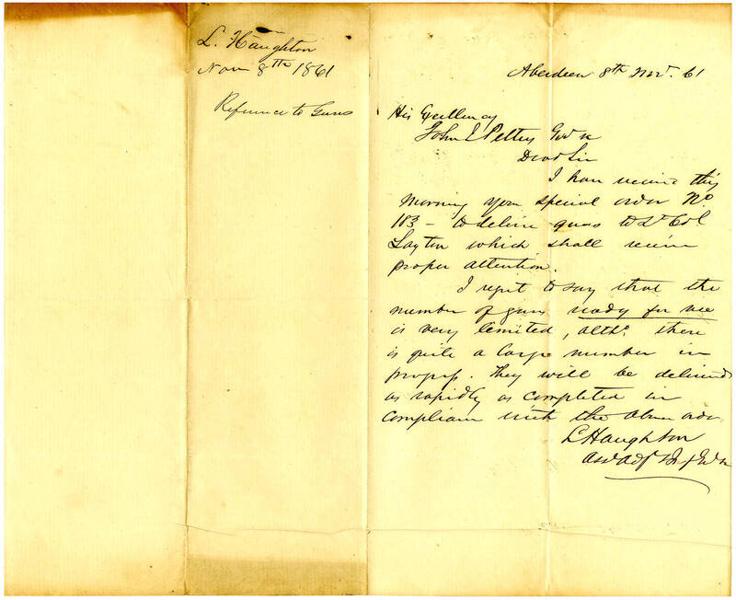 L. Haughton
Nov 8th 1861
Refrence to Guns
Aberdeen 8th Nov. 61
His Excellency
John J Pettus
Dear Sir
I have receivd this
Morning your special order No
183 - to deliver guns to Lt Col
Layton which shall receive
proper attention.
I regret to say that the
number of guns ready for use
is very limited, altho there
is quite a large number in
progress. They will be delivered
as rapidly as completed in
compliance with the above order
L Haughton